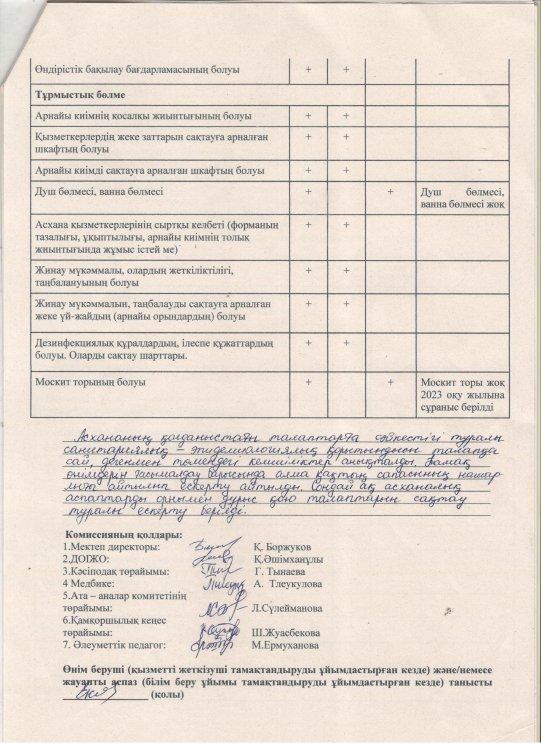 Өндірістік бақылау бағдарламасының болуы + +
Тұрмыстық бөлме
Арнайы киімнің қосалқы жиынтығының болуы + +
Қызметкерлердің жеке заттарын сақтауға арналған + +
шкафтың болуы
Арнайы киімді сақтауға арналған шкафтың болуы + +
Душ бөлмесі, ванна бөлмесі + + Душ бөлмесі,
ванна бөлмесі жоқ
Асхана қызметкерлерінің сыртқы келбеті (форманың + +
тазалығы, ұқыптылығы, арнайы киімнің толық
жиынтығында жұмыс істей ме)
Жинау мүкәммалы, олардың жеткіліктілігі, + +
таңбалануының болуы
Жинау мүкәммалын, таңбалауды сақтауға арналған + +
жеке үй-жайдың (арнайы орындардың) болуы
Дезинфекциялық құралдардың, ілеспе құжаттардың + +
болуы. Оларды сақтау шарттары.
Москит торының болуы + + Москит торы жоқ
2023 оқу жылына
сұраныс берілді
Асхананың қолданыстағы талаптарға сәйкестігі туралы
санитариялық – эпидемиологиялық қорытындының талапқа
сай, дегенмен төмендегі кемшіліктер анықталды. Тамақ
өнімдерін тасымалдау барысында алма қақтың сапасының нашар-
лығы айтылып ескерту айтылды. Сондай ақ асханалық
аспаптарды орнымен дұрыс қою талаптарын сақтау
туралы ескерту берілді.
Комиссияның қолдары:
1.Мектеп директоры: Қ. Боржуков
2.ДОІЖО: Қ.Әшімханұлы
3.Кәсіподақ төрайымы: Г. Тынаева
4 Медбике: А. Тлеукулова
5.Ата – аналар комитетінің
төрайымы: Л.Сүлейманова
6.Қамқоршылық кеңес
төрайымы: Ш.Жуасбекова
7. Әлеуметтік педагог: М.Ермуханова
Өнім беруші (қызметті жеткізуші тамақтандыруды ұйымдастырған кезде) және/немесе
жауапты аспаз (білім беру ұйымы тамақтандыруды ұйымдастырған кезде) танысты
(қолы)